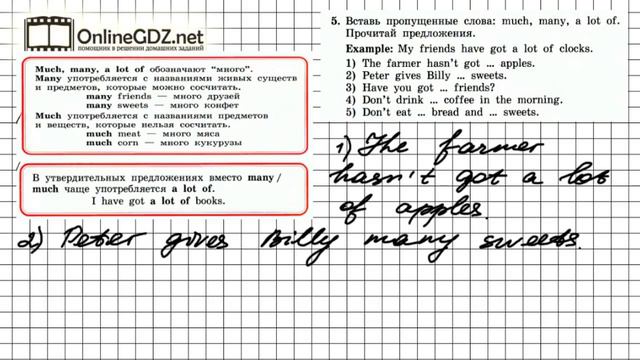 OnlineGDZ.net
помощник в решении домашних заданий
Much, many, a lot of обозначают "много".
Many употребляется с названиями живых существ
и предметов, которые можно сосчитать.
many friends — много друзей
many sweets — много конфет
Much употребляется с названиями предметов
и веществ, которые нельзя сосчитать.
much meat — много мяса
much corn — много кукурузы
В утвердительных предложениях вместо many /
much чаще употребляется a lot of.
I have got a lot of books.
5. Вставь пропущенные слова: much, many, a lot of.
Прочитай предложения.
Example: My friends have got a lot of clocks.
1) The farmer hasn't got ... apples.
2) Peter gives Billy ... sweets.
3) Have you got ... friends?
4) Don't drink ... coffee in the morning.
5) Don't eat ... bread and ... sweets.
1) The farmer
hasn't got a lot
of apples.
2) Peter gives Billy many sweets.